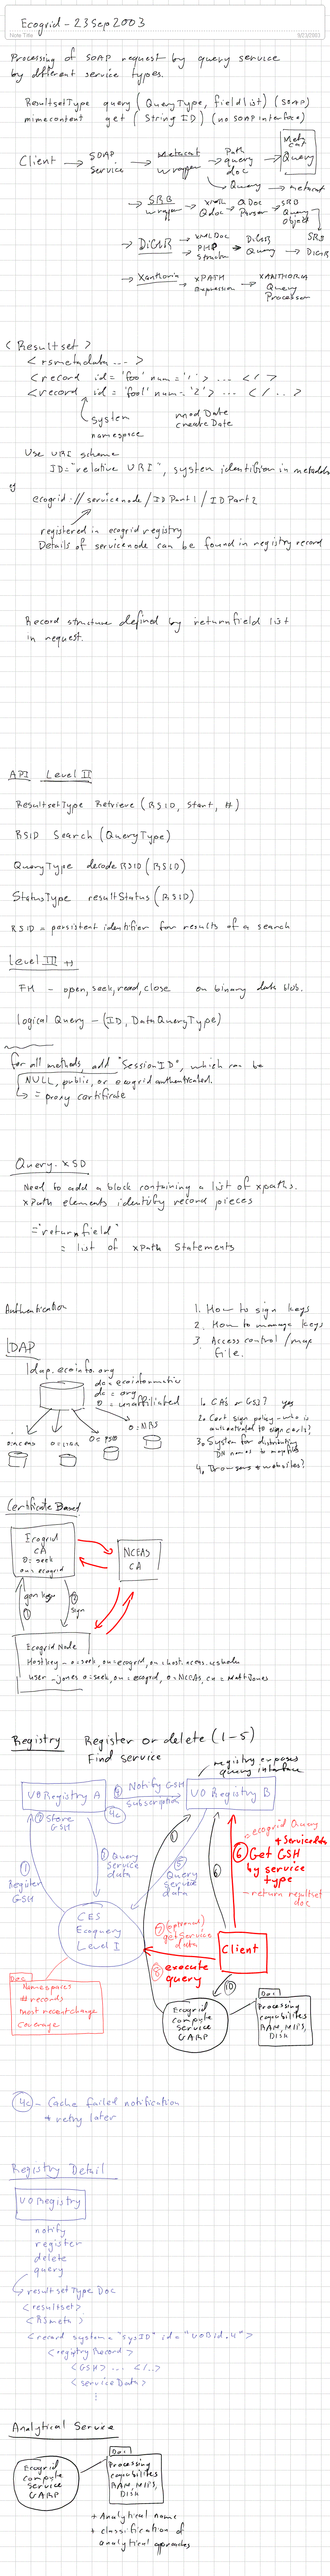 Ecogrid - 23 Sep 2003
Note Title
9/23/2003
Processing of SOAP request by query service
by different service types.
ResultsetType query (QueryType, fieldlist) (SOAP)
mimecontent get (String ID) (no SOAP interface)
Client → SOAP Service → Metacat wrapper → Path query doc → Metacat Query
Query → metacat
→ SRB wrapper → XML Qdoc → QDoc Parser → SRB Query object
SRB
→ DiGIR → XML Doc
→ PHP Structure → DiGIR Query → DiGIR
→ Xanthoria → XPATH Expression → XANTHORIA Query Processor
<Resultset>
<rsmetadata ... >
<record id='foo' num='1'> ... </>
<record id='foo1' num='2'> ... </...>
system namespace
modDate
createDate
Use URI scheme
ID="relative URI", system identification in metadata
eg
ecogrid://servicenode/IDPart1/IDPart2
registered in ecogrid registry
Details of servicenode can be found in registry record
Record structure defined by returnfield list
in request.
API Level II
ResultsetType Retrieve (RSID, Start, #)
RSID Search (QueryType)
QueryType decodeRSID (RSID)
StatusType resultStatus (RSID)
RSID = persistent identifier for results of a search
Level III
FM - open, seek, read, close on binary data blob.
logical Query - (ID, DataQueryType)
for all methods, add "SessionID", which can be
NULL, public, or ecogrid authenticated.
→ = proxy certificate
Query.XSD
Need to add a block containing a list of xpaths.
xPath elements identify record pieces
="returnfield"
= list of xPath Statements
Authentication
1. How to sign keys
2. How to manage keys
3. Access control / map file.
LDAP
ldap.ecoinfo.org
dc=ecoinformatics
dc=org
o=unaffiliated
o:NCEAS
o:LTER
o:NRS
1. CAs or GSI? yes
2. Cert sign policy - who is authenticated to sign certs?
3. System for distribution DN names to mapfiles
4. Browsers + websites?
Certificate Based
Ecogrid
CA
o=seek
ou=ecogrid
NCEAS
CA
gen key
1
2
sign
Ecogrid Node
Hostkey - o=seek, ou=ecogrid,
user - jones o=seek, ou=ecogrid, o=NCEAS, cn=MattJones
Registry Register or delete (1-5)
Find service
registry exposes query interface
VO Registry A
4 Notify GSH
subscription
4c
VO Registry B
2 Store GSH
1
Register GSH
3 Query Service data
5 Query service data
ecogrid Query
+ Servicedata
6 Get GSH by service type
- return resultset doc
CES
Ecoquery
Level I
7 (optional) getService data
8 execute query
Client
10
Doc
Namespaces
# records
most recent change
coverage
Ecogrid
compute
Service
GARP
Doc
Processing
capabilities
RAM, MIPS,
DISK
4c - Cache failed notification
+ retry later
Registry Detail
VO Registry
notify
register
delete
query
→ resultsetType Doc
<resultset>
<RSmeta>
<record system="sysID" id="
<registryRecord>
<GSH> ... </..>
<serviceData>
Analytical Service
Ecogrid
compute
Service
GARP
Doc
Processing
capabilities
RAM, MIPS,
DISK
+ Analytical name
+ classification of
analytical approaches